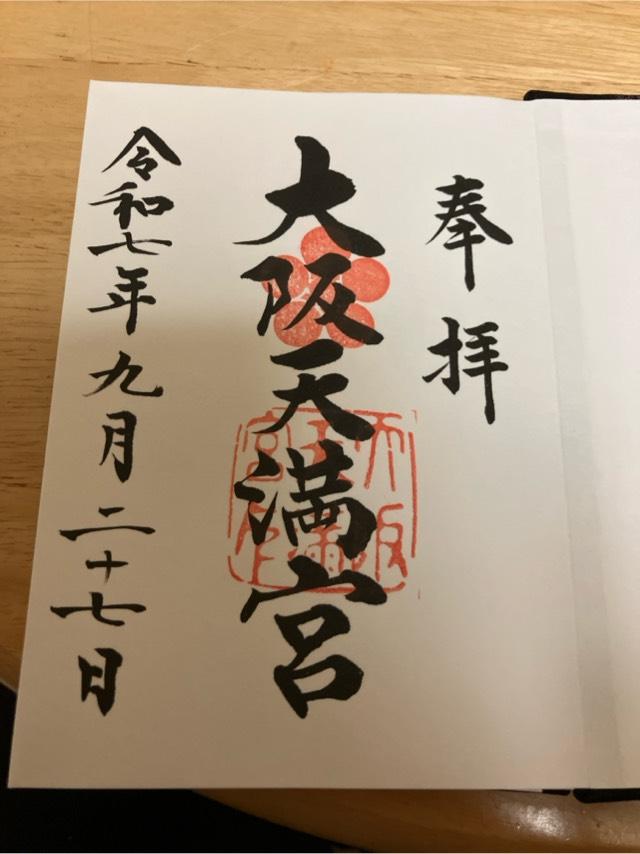 奉拝
大阪天満宮
令和七年九月二十七日